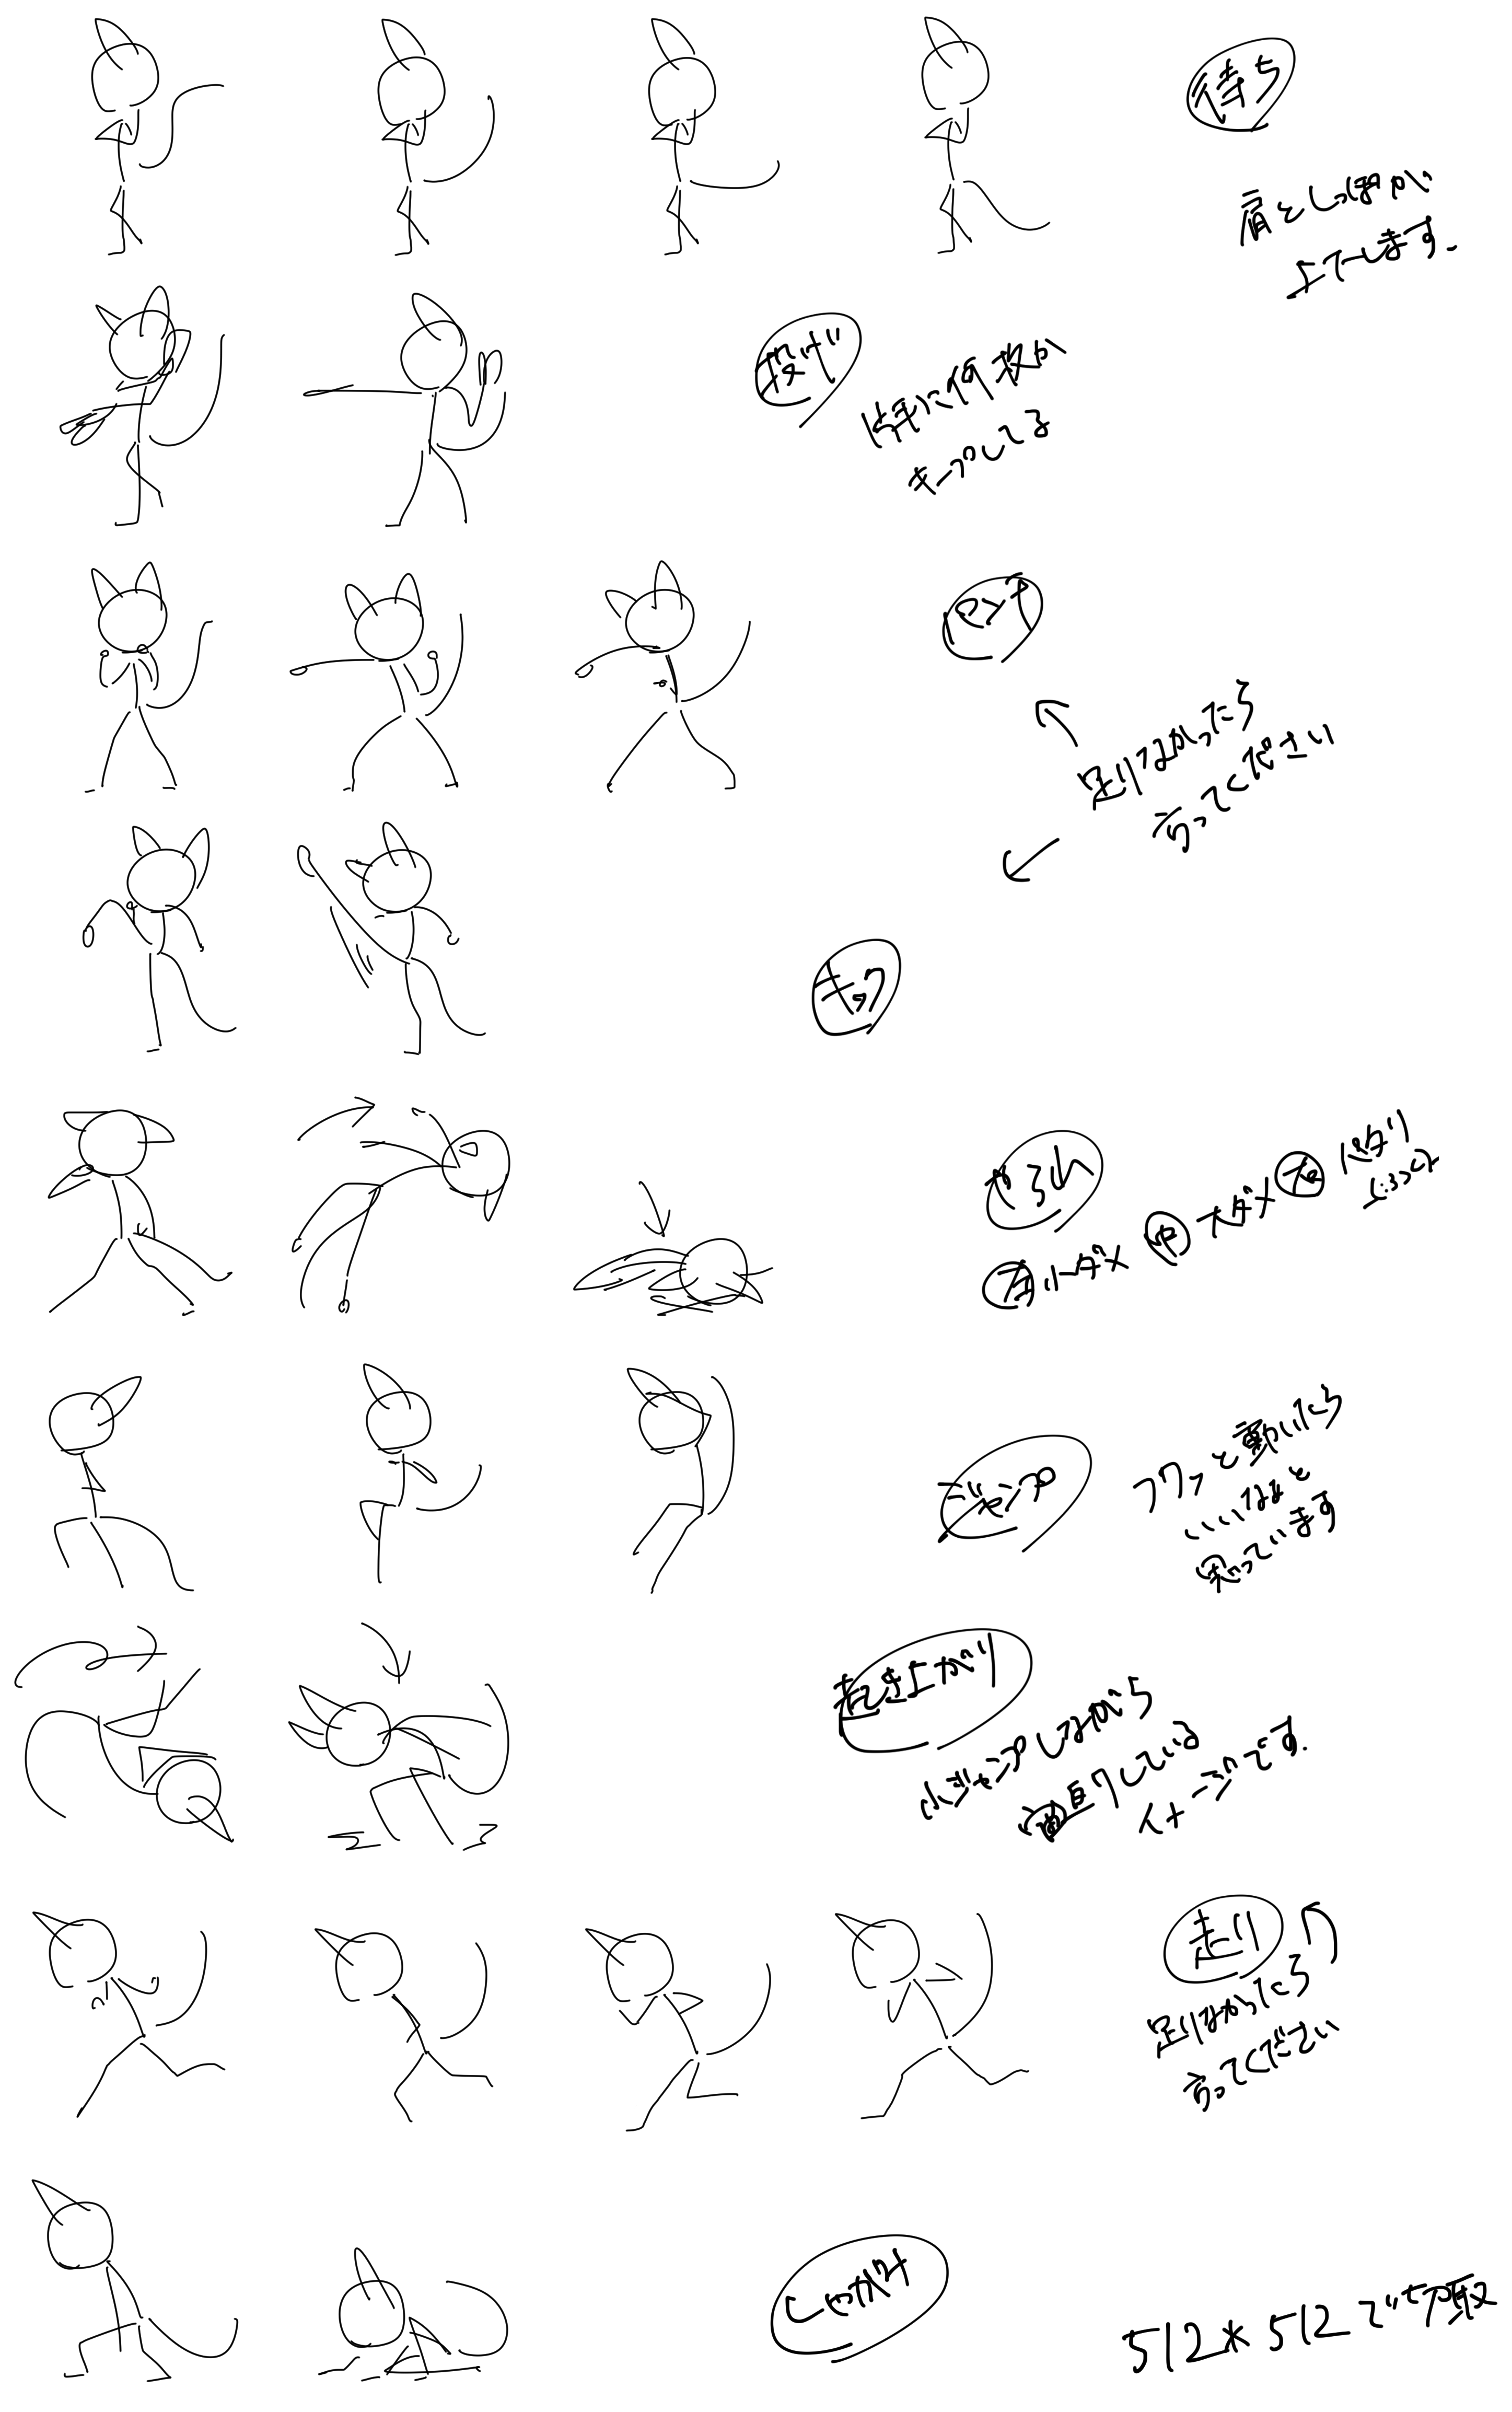 待ち
肩としっぽが
上下します.
投げ
片手に何枚か
キープしてる
パンチ
足りなかったら
言ってください
キック
やられ
左 小ダメ 中 大ダメ 右
ジャンプ
フワッと動いたら
いいなと
思っています
起き上がり
小ジャンプしながら
宙返りしている
イメージです.
走り
足りなかったら
言ってください
しゃがみ
512*512で下敷